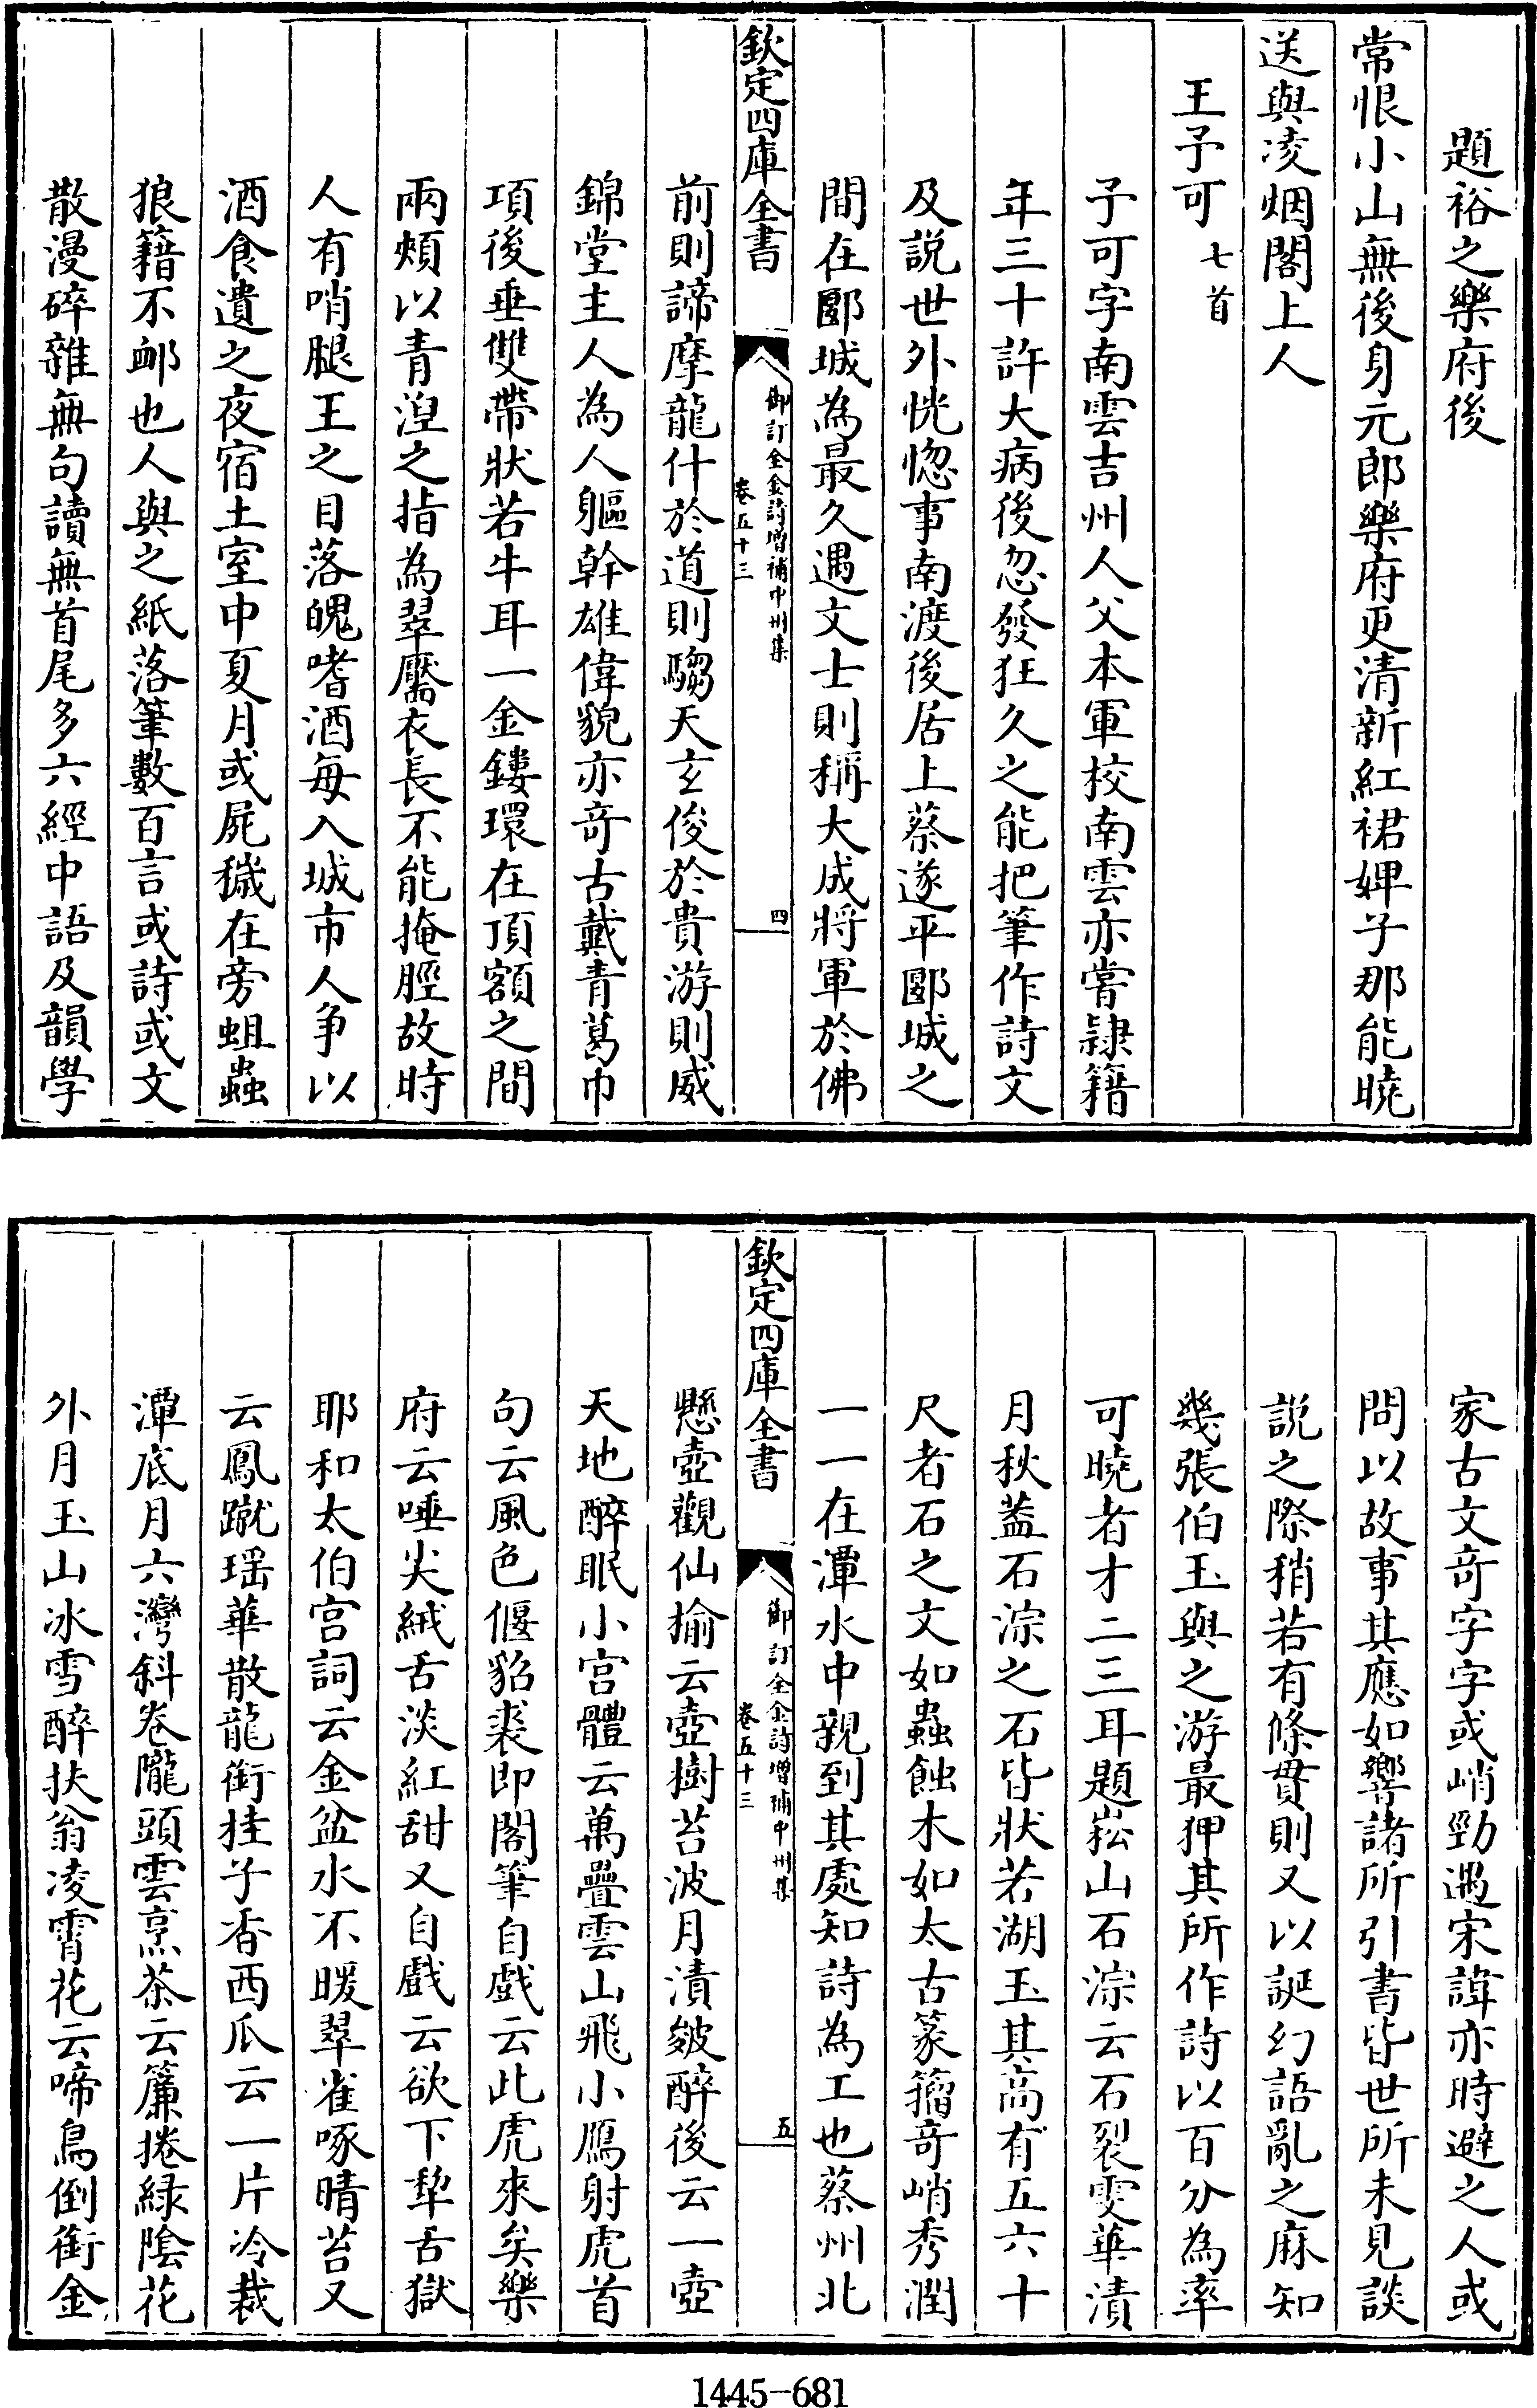 題裕之樂府後
常恨小山無後身元郎樂府更清新紅裙婢子那能曉
送與凌烟閣上人
王予可七首
子可字南雲吉州人父本軍校南雲亦嘗隷籍
年三十許大病後忽發狂久之能把筆作詩文
及説世外恍惚事南渡後居上蔡遂平郾城之
間在郾城為最久遇文士則稱大成將軍於佛
欽定四庫全書
御訂全金詩增補中州集
卷五十三
四
前則諦摩龍什於道則騶天玄俊於貴游則威
錦堂主人為人軀幹雄偉貌亦竒古戴青葛巾
項後垂雙帶狀若牛耳一金鏤環在頂額之間
兩頰以青湼之指為翠靨衣長不能掩脛故時
人有哨腿王之目落魄嗜酒每入城市人争以
酒食遺之夜宿土室中夏月或屍穢在旁蛆蟲
狼籍不䘏也人與之紙落筆數百言或詩或文
散漫碎雜無句讀無首尾多六經中語及韻學
家古文竒字字或峭勁遇宋諱亦時避之人或
問以故事其應如響諸所引書皆世所未見談
説之際稍若有條貫則又以誕幻語亂之麻知
幾張伯玉與之游最狎其所作詩以百分為率
可曉者才二三耳題崧山石淙云石裂雯華漬
月秋葢石淙之石皆狀若湖玉其高有五六十
尺者石之文如蟲蝕木如太古篆籀竒峭秀潤
一一在潭水中親到其處知詩為工也蔡州北
欽定四庫全書
御訂全金詩增補中州集
卷五十三
五
懸壺觀仙榆云壺樹苔波月漬皴醉後云一壺
天地醉眠小宫體云萬疊雲山飛小鴈射虎首
句云風色偃貂裘即閣筆自戲云此虎來矣樂
府云唾尖絨舌淡紅甜又自戲云欲下犂舌獄
耶和太伯宫詞云金盆水不暖翠雀啄晴苔又
云鳳蹴瑶華散龍銜桂子香西瓜云一片冷裁
潭底月六灣斜卷隴頭雲烹茶云簾捲緑陰花
外月玉山冰雪醉扶翁凌霄花云啼鳥倒銜金
1445-681